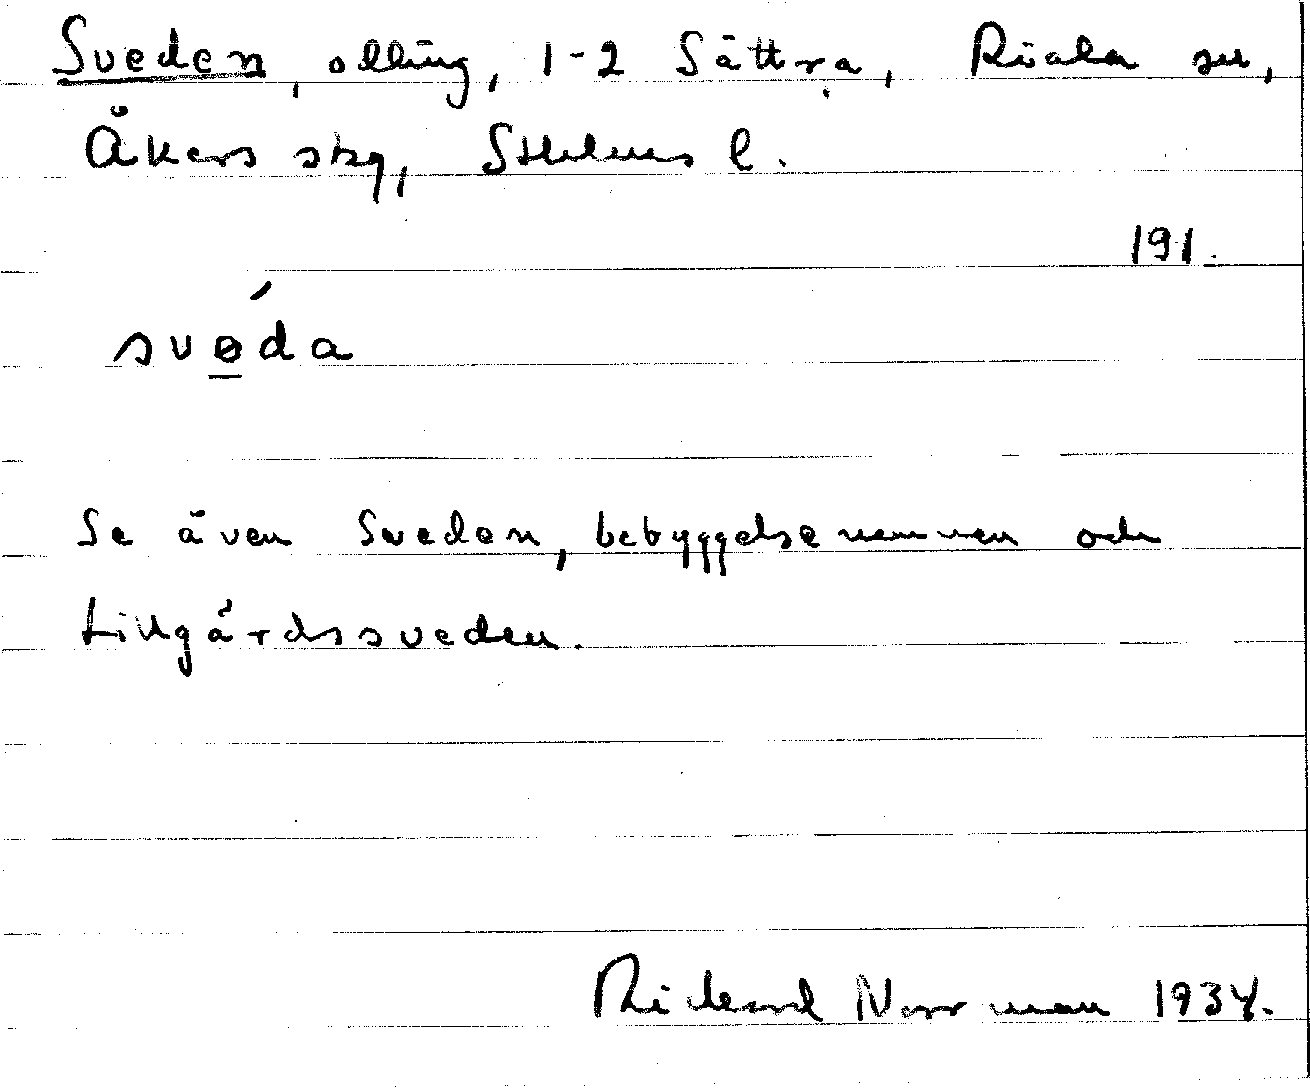 Sveden, odling, 1-2 Sättra, Riala sn,
Åkers skg, Sthlms l.
191.
svǿda
Se även Sveden, bebyggelsenamnen och
Lillgårdssveden.
Rickard Norrman 1934.